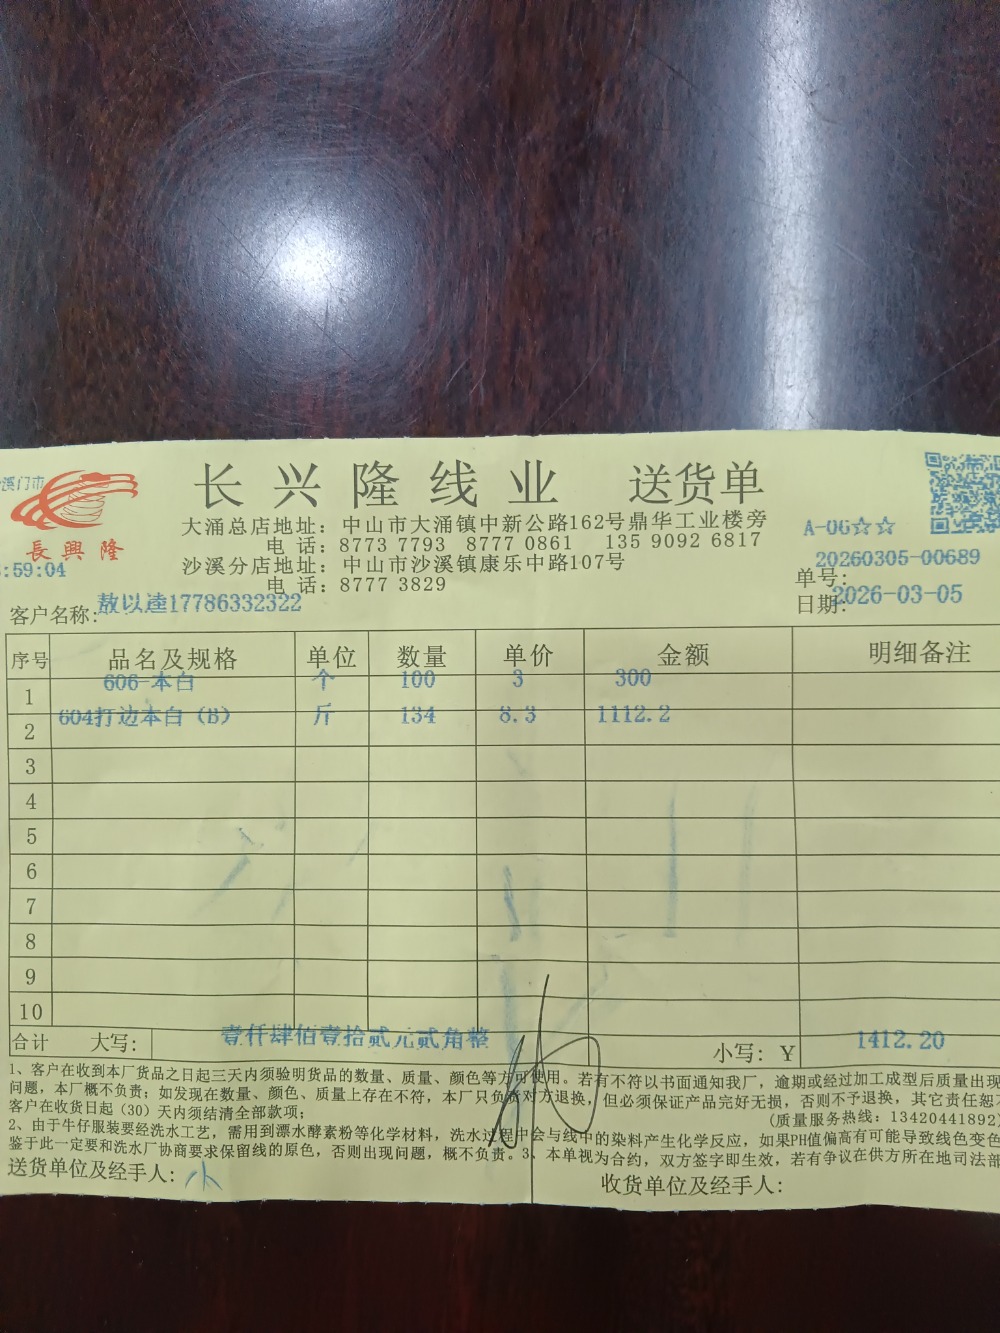 溪门市
長興隆
:59:04
长兴隆线业 送货单
大涌总店地址：中山市大涌镇中新公路162号鼎华工业楼旁
电 话：8773 7793 8777 0861 135 9092 6817
沙溪分店地址：中山市沙溪镇康乐中路107号
电 话：8777 3829
A-06☆☆
单号：20260305-00689
日期：2026-03-05
客户名称：敖以逵17786332322
序号 品名及规格 单位 数量 单价 金额 明细备注
1 606-本白 个 100 3 300
2 604打边本白（B） 斤 134 8.3 1112.2
3
4
5
6
7
8
9
10
合计 大写：壹仟肆佰壹拾贰元贰角整 小写：￥ 1412.20
1、客户在收到本厂货品之日起三天内须验明货品的数量、质量、颜色等方可使用。若有不符以书面通知我厂，逾期或经过加工成型后质量出现
问题，本厂概不负责；如发现在数量、颜色、质量上存在不符，本厂只负责对方退换，但必须保证产品完好无损，否则不予退换，其它责任恕不
客户在收货日起（30）天内须结清全部款项； （质量服务热线：13420441892）
2、由于牛仔服装要经洗水工艺，需用到漂水酵素粉等化学材料，洗水过程中会与线中的染料产生化学反应，如果PH值偏高有可能导致线色变色
鉴于此一定要和洗水厂协商要求保留线的原色，否则出现问题，概不负责。3、本单视为合约，双方签字即生效，若有争议在供方所在地司法部
送货单位及经手人： 收货单位及经手人：